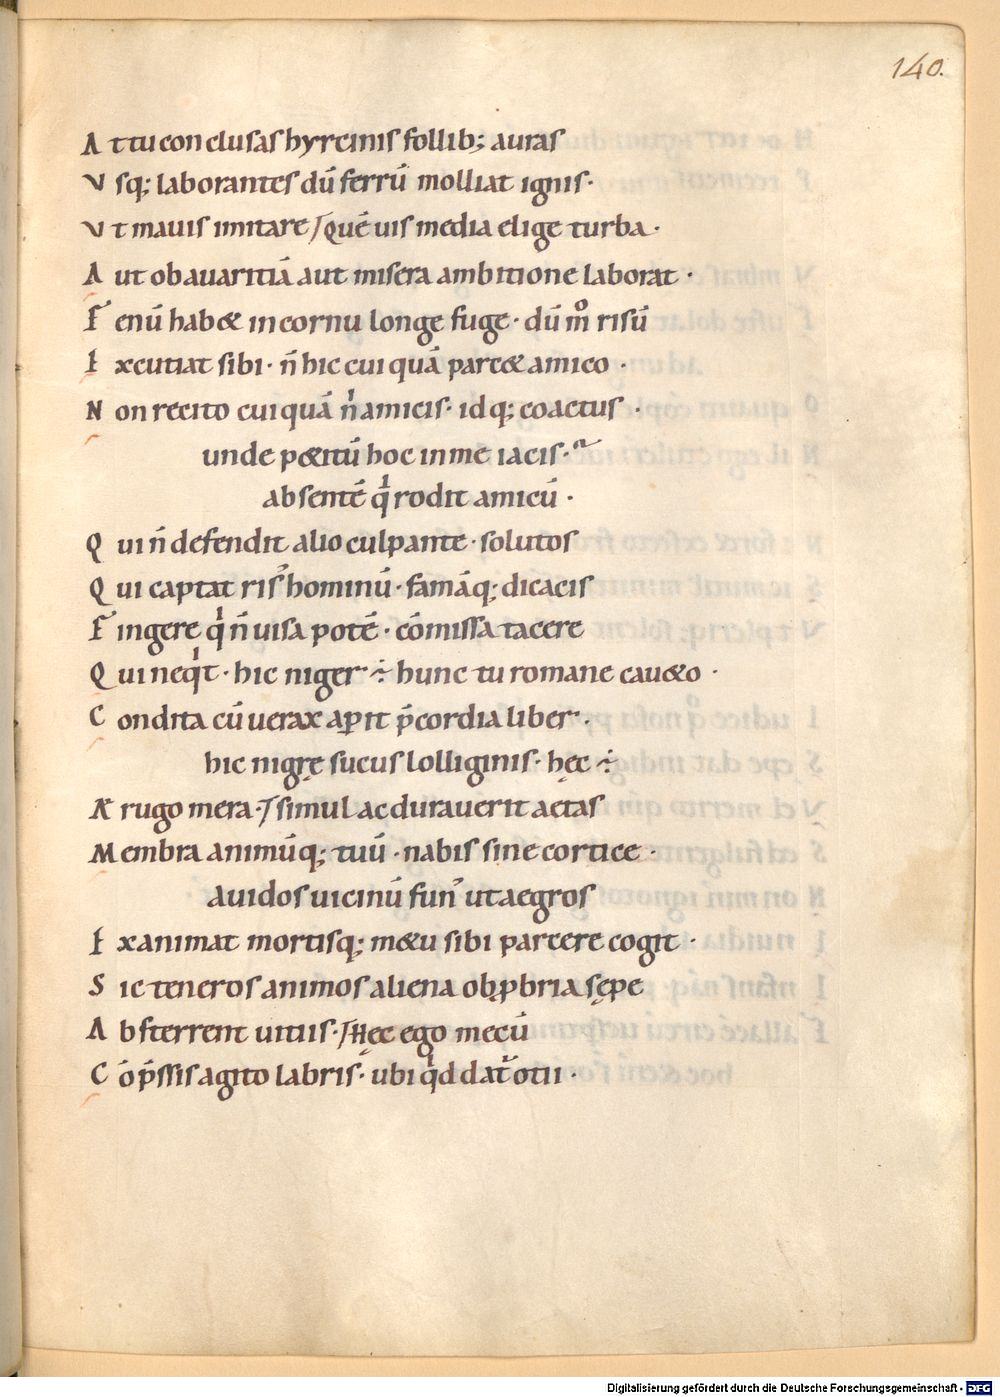 140.
A t tu conclusas hyrcinis follib; auras
V sq; laborantes dū ferrū molliat ignis·
V t mauis imitare / Quē uis media elige turba·
A ut ob auaritiā aut misera ambitione laborat·
F enū hab& in cornu longe fuge· dū m̊ risū
E xcutiat sibi· n̄ hic cuiquā parc& amico·
N on recito cuiquā nͥ amicis· idq; coactus·
unde p&itū hoc in me iacis·
absentē qͥ rodit amicū·
Q ui n̄ defendit alio culpante· solutos
Q ui captat ris᾿ hominū· famāq; dicacis
F ingere qͥ n̄ uisa potē· cōmissa tacere
Q ui neqͥt· hic niger ÷ hunc tu romane cau&o·
C ondita cū uerax aꝑit p̄cordia liber·
hic nigrę sucus lolliginis· hęc ÷
Æ rugo mera· / simul ac durauerit aetas
M embra animūq; tuū· nabis sine cortice·
auidos uicinū fun᾿ ut aegros
E xanimat mortisq; m&u sibi parcere cogit·
S ic teneros animos aliena obꝓbria sępe
A bsterrent uitiis· / Hęc ego mecū
C ōp̄ssis agito labris· ubi qͥd dat᾿ otii·
Digitalisierung gefördert durch die Deutsche Forschungsgemeinschaft - DFG